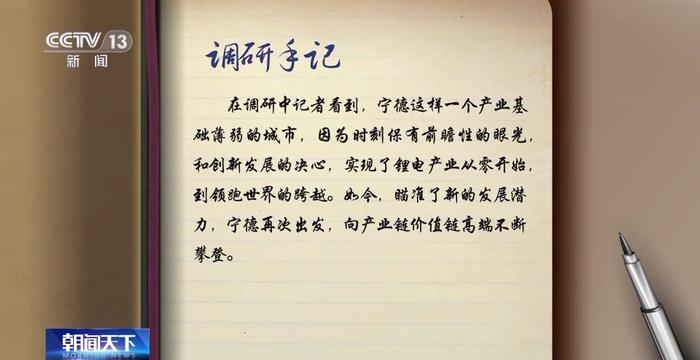 CCTV 13
新闻
调研手记
在调研中记者看到，宁德这样一个产业基
础薄弱的城市，因为时刻保有前瞻性的眼光，
和创新发展的决心，实现了锂电产业从零开始，
到领跑世界的跨越。如今，瞄准了新的发展潜
力，宁德再次出发，向产业链价值链高端不断
攀登。
朝闻天下
MORNING NEWS